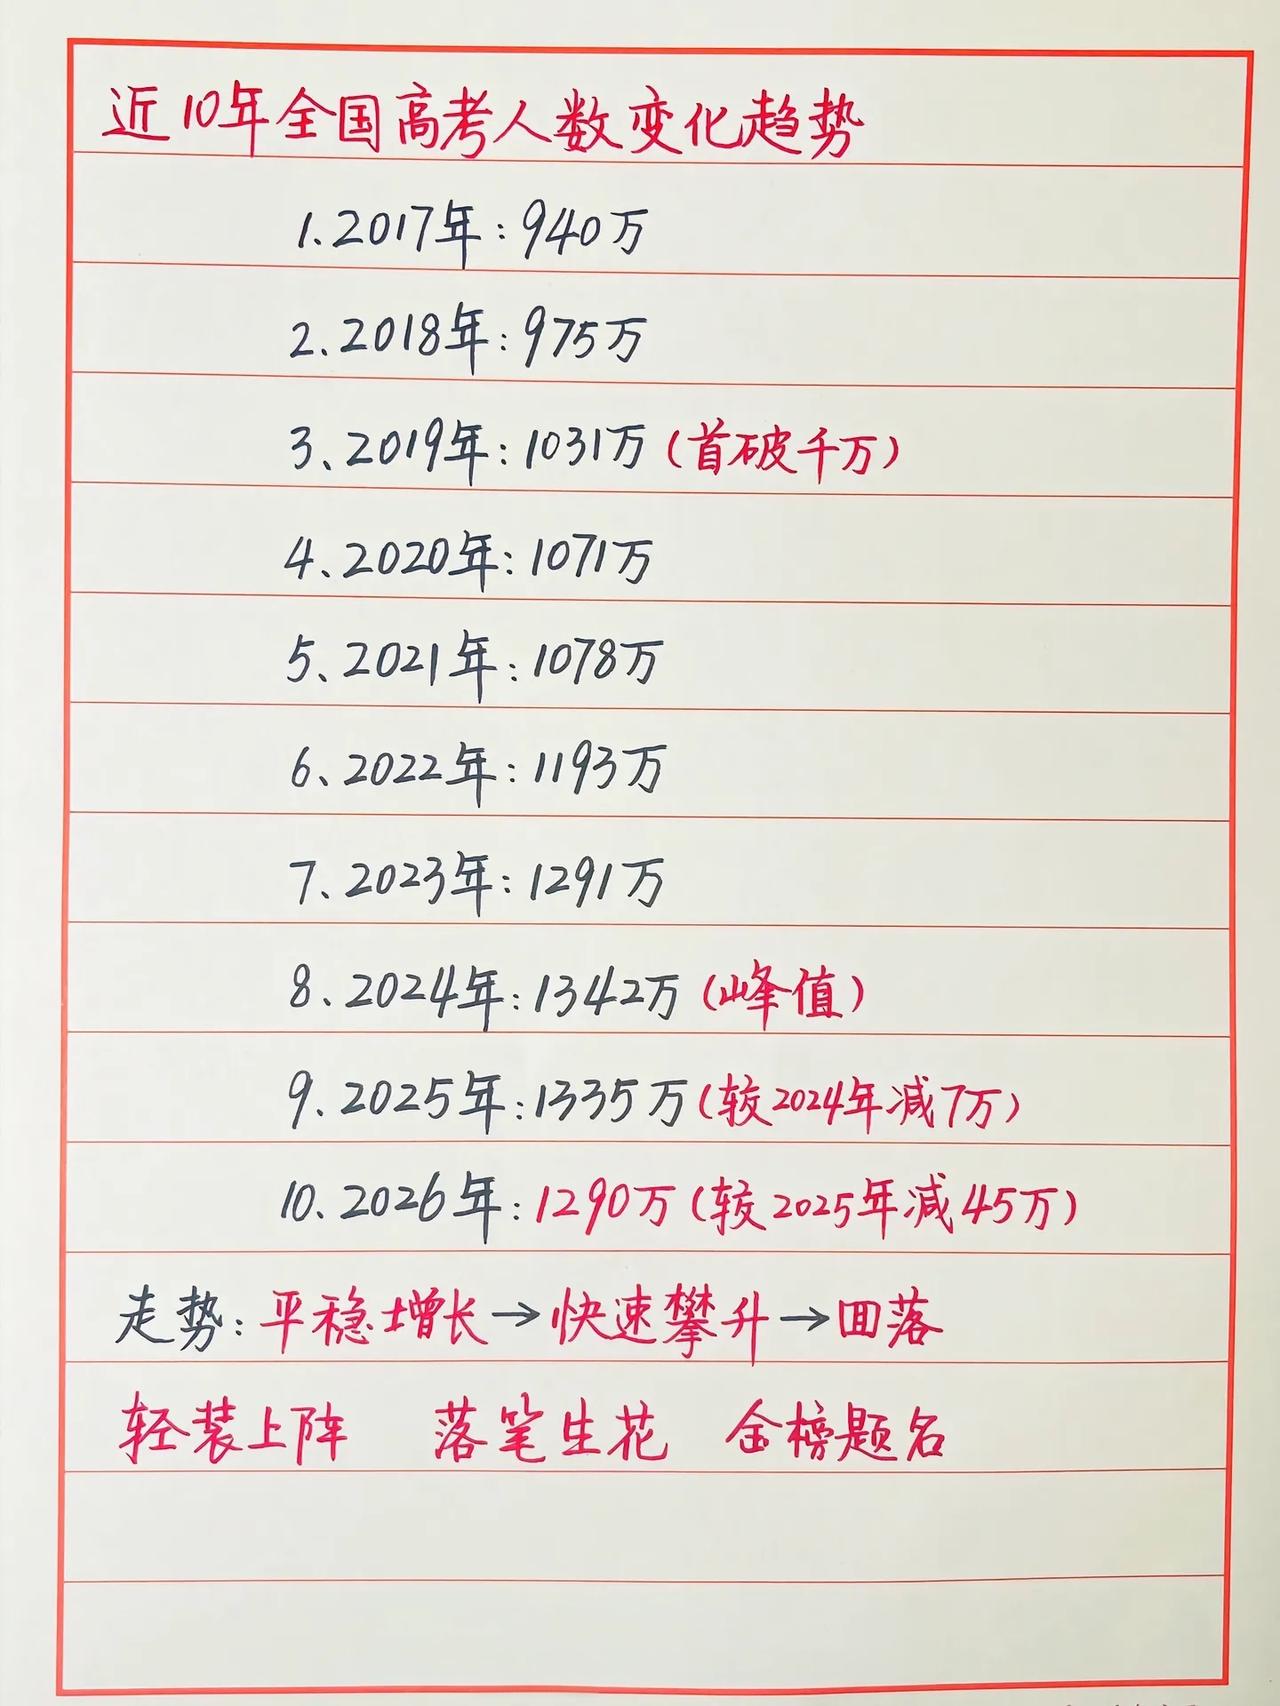 近10年全国高考人数变化趋势
1.2017年:940万
2.2018年:975万
3、2019年:1031万(首破千万)
4、2020年:1071万
5、2021年:1078万
6、2022年:1193万
7、2023年:1291万
8、2024年:1342万(峰值)
9、2025年:1335万(较2024年减7万)
10、2026年:1290万(较2025年减45万)
走势:平稳增长→快速攀升→回落
轻装上阵 落笔生花 金榜题名